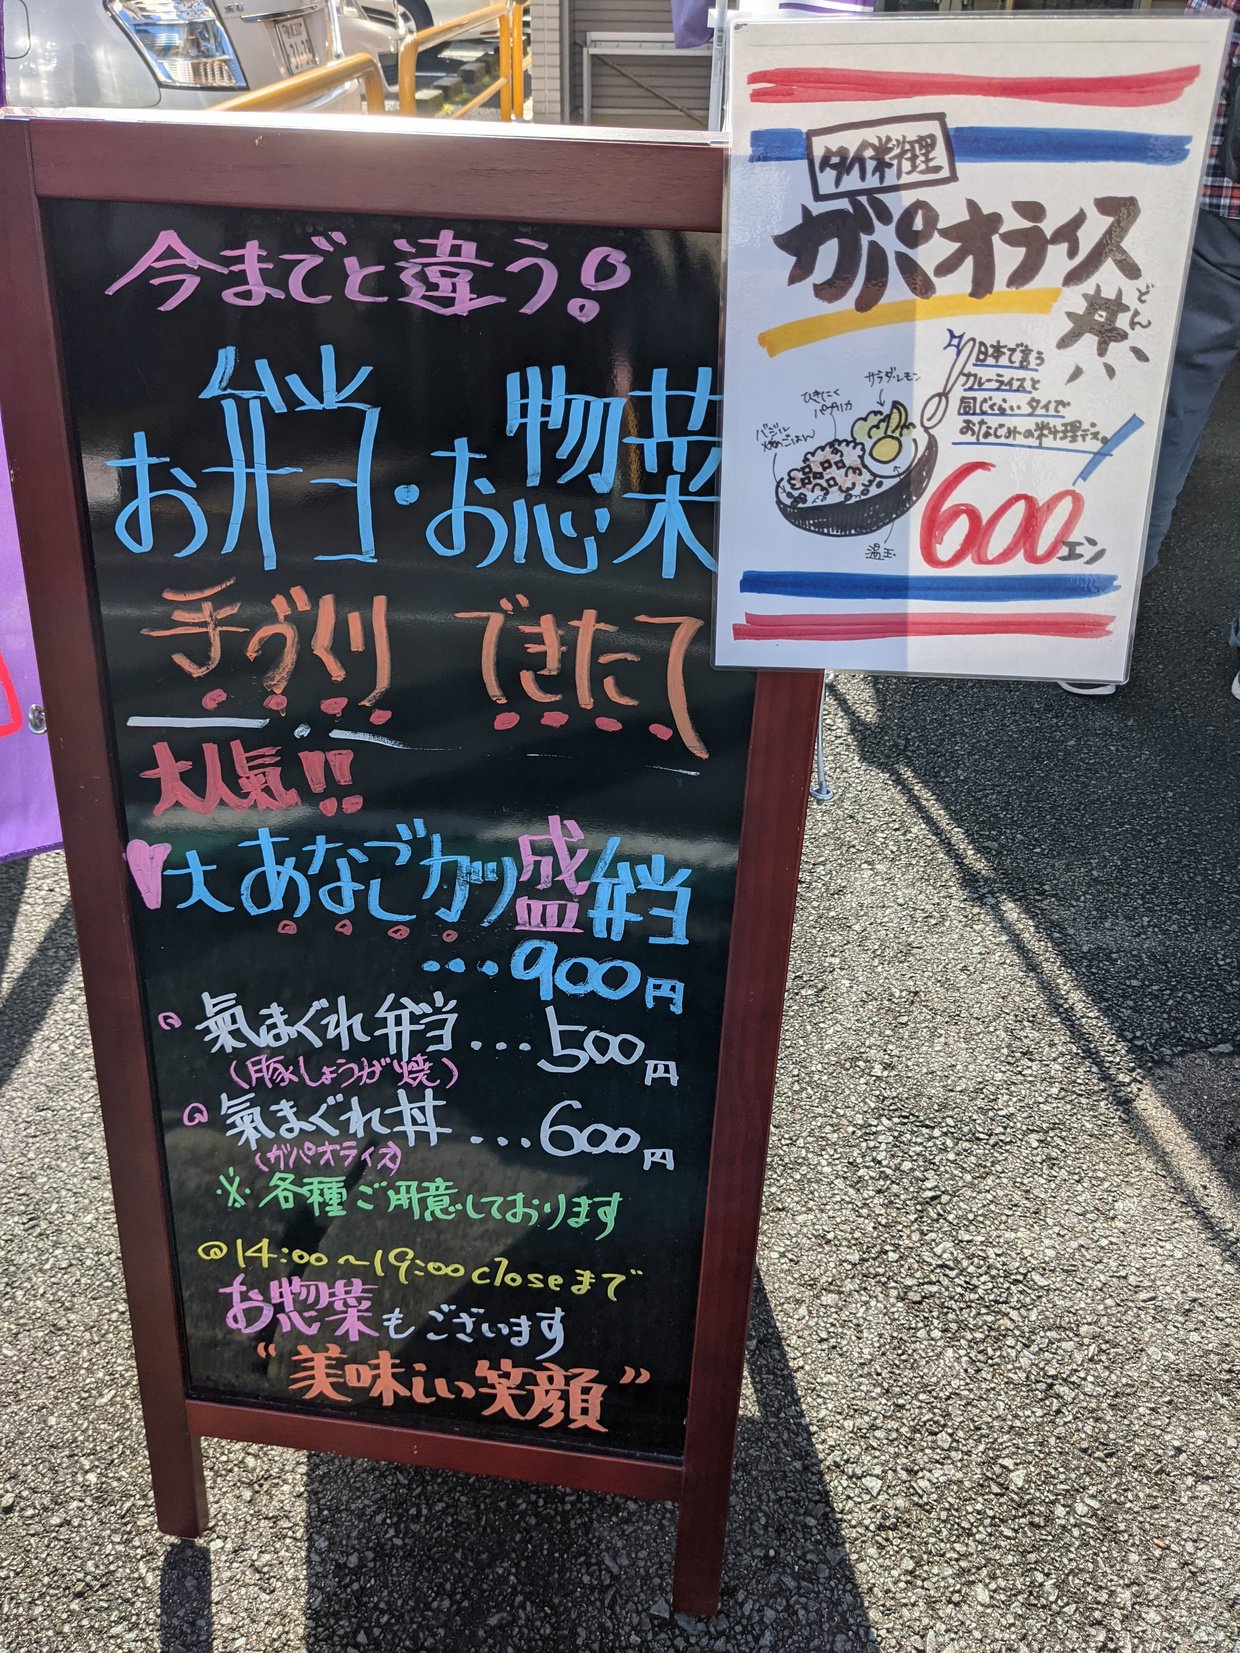 今までと違う!
お弁当・お惣菜
手づくり できたて
大人氣!!
大あなごガツ盛弁当
...900円
氣まぐれ弁当...500円
(豚しょうが焼)
氣まぐれ丼...600円
(ガパオライス)
※各種ご用意しております
14:00〜19:00closeまで
お惣菜もございます
"美味しい笑顔"
タイ料理
ガパオライス
丼
どん
日本で言う
カレーライスと
同じくらいタイで
おなじみの料理デス。
サラダ・レモン
ひきにく
パプリカ
バジル
温玉
600エン